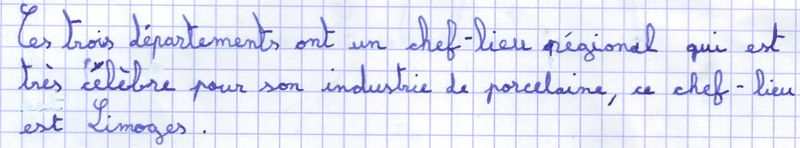 Ces trois départements ont un chef-lieu régional qui est
très célèbre pour son industrie de porcelaine, ce chef-lieu
est Limoges.